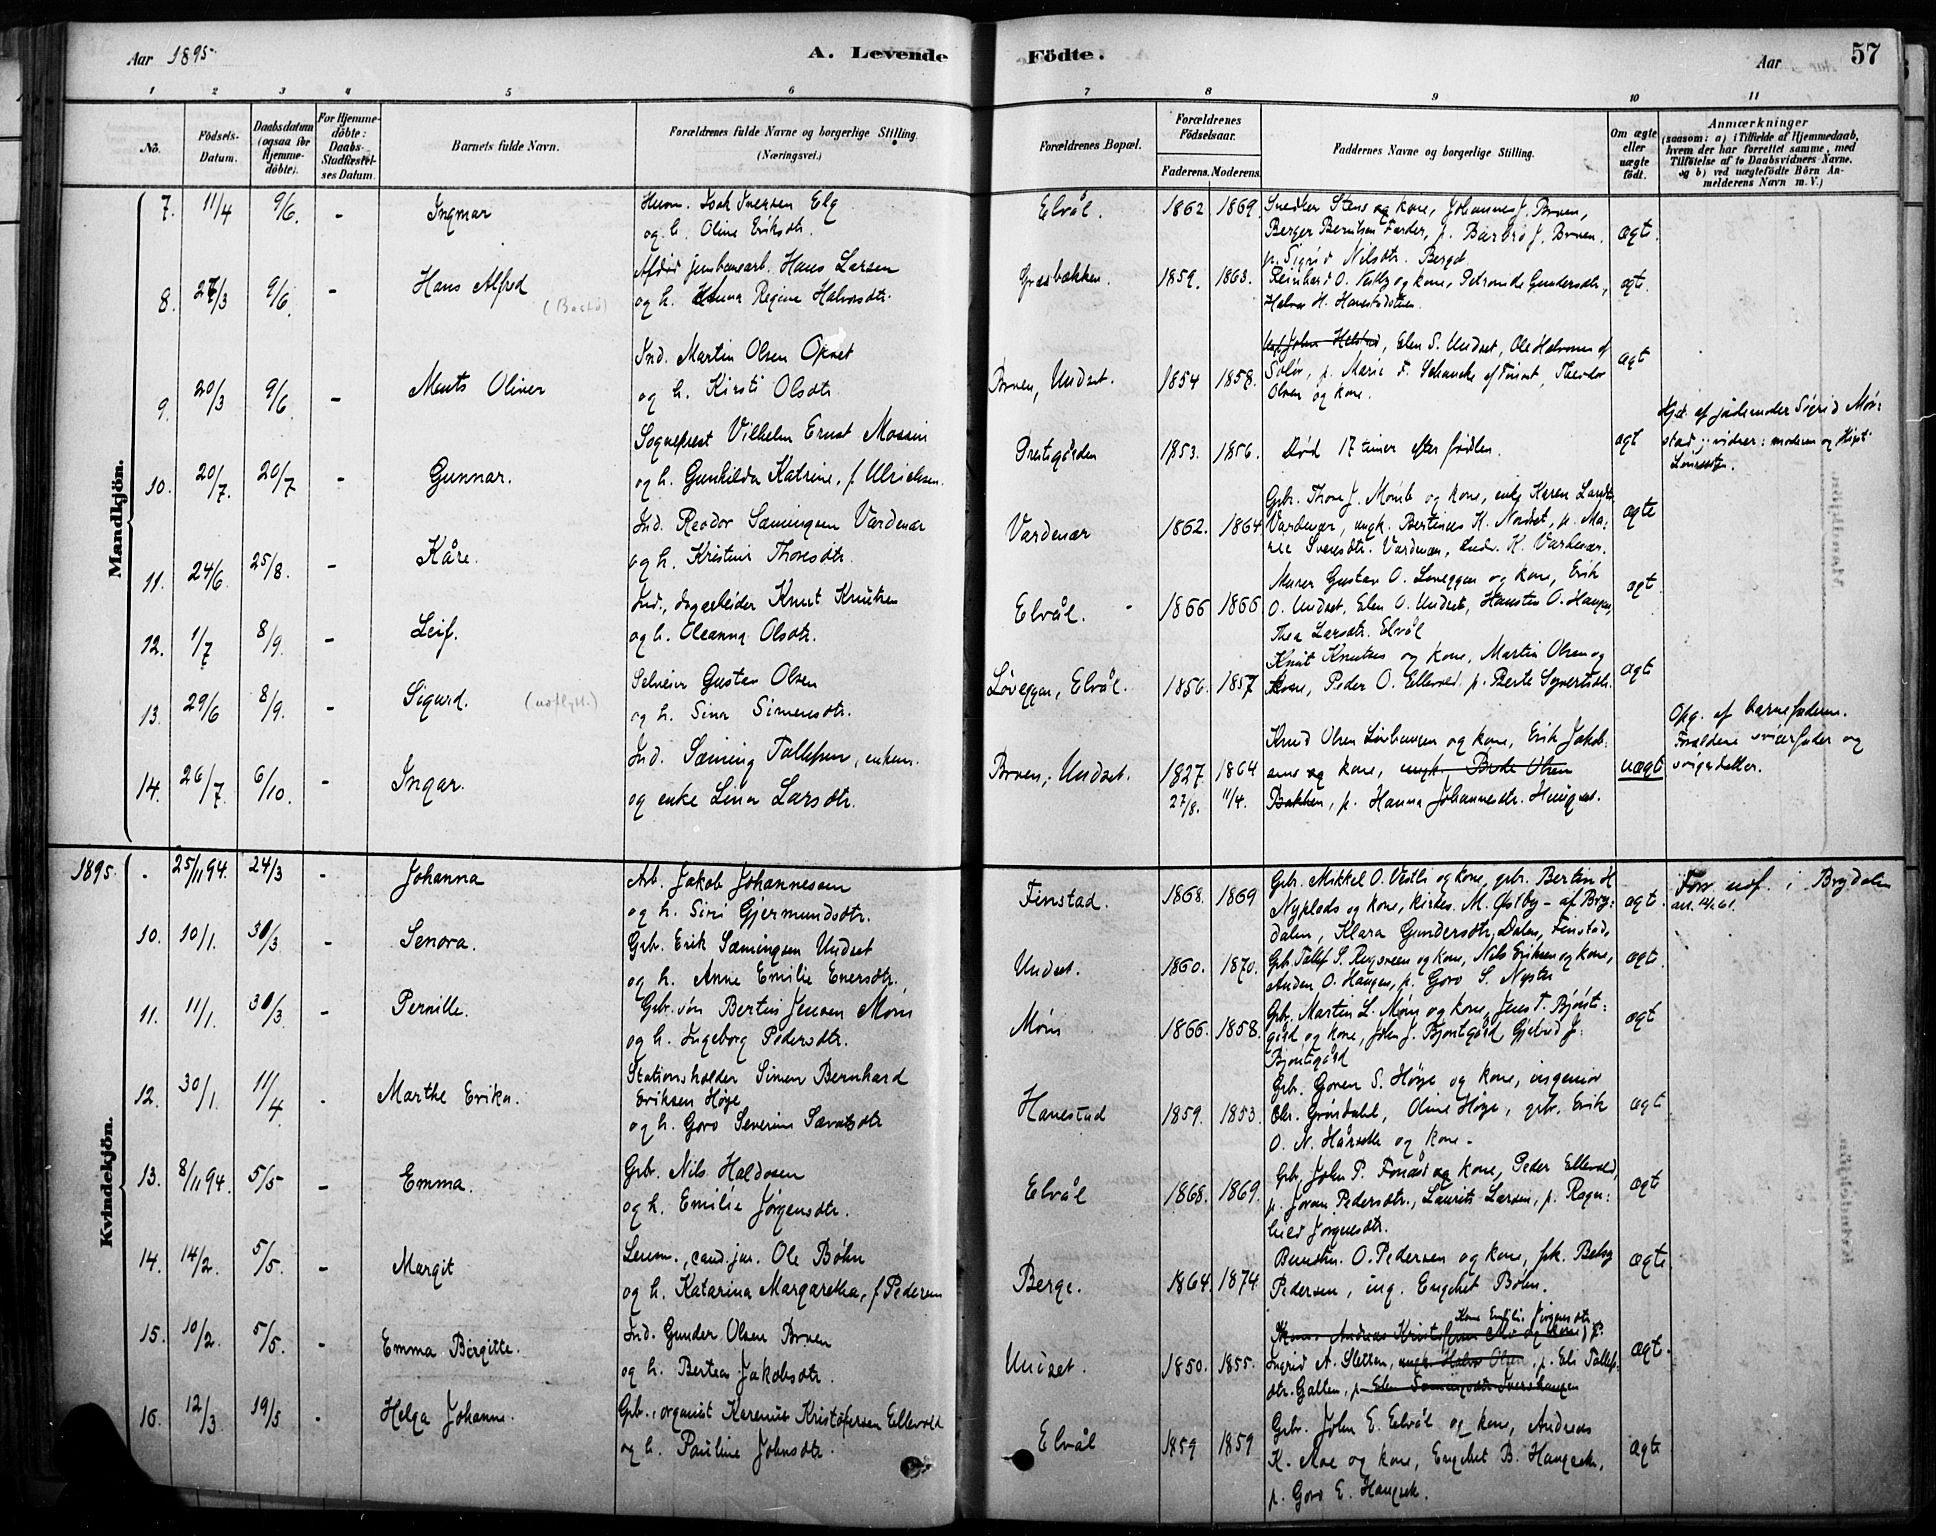 Aar 1895.
A. Levende Födte.
Aar
57
1 2 3 4 5 6 7 8 9 10 11
No.
Födsels-Datum.
Daabsdatum (ogsaa for Hjemme-döbte).
For Hjemme-döbte: Daabs-Stadfæstel-ses Datum.
Barnets fulde Navn.
Forældrenes fulde Navne og borgerlige Stilling. (Næringsvei.)
Forældrenes Bopæl.
Forældrenes Födselsaar.
Faderens. Moderens.
Faddernes Navne og borgerlige Stilling.
Om ægte eller uægte födt.
Anmærkninger (saasom: a) i Tilfælde af Hjemmedaab, hvem der har forrettet samme, med Tilföielse af to Daabsvidners Navne. og b) ved uægtefödte Börn An-melderens Navn m. V.)
Mandkjön.
7. 11/4 9/6. - Ingmar
Husm. Isak Iversen Elg
og h. Oline Eriksdtr.
Elvål. 1862 1869.
Snedker Stens og kone, Johannes J. Bruen,
Berger Berntsen Farder, p. Barbro J. Bruen.
p. Sigrid Nilsdtr. Berget
ægte.
8. 27/3 9/6. - Hans Alfred (Bastø)
Afdød jernbanearb. Hans Larsen
og h. Anna Regine Halvorsdtr.
Græsbækken. 1859. 1863.
Reinhard O. Vestby og kone, Petronille Gundersdtr,
Halvor H. Hanestadsteen.
ægt.
9. 20/3 9/6. - Ments Oliver
Ind. Martin Olsen Oknet
og h. Kirsti Olsdtr.
Bruen, Undset. 1854 1858.
John Helstad, Elen S. Undset, Ole Halvorsen af
Solør, p. Marie F. Schancke af Finset, Theodor
Olsen og kone.
ægt
10. 20/7. 20/7 - Gunnar.
Sogneprest Vilhelm Ernst Massin
og h. Gunhilda Katrine, f. Ulrichsen.
Prestegården 1853. 1856.
Død 17 timer efter fødslen.
ægt
Hjd. af jordemoder Sigrid Møn-
stad; vidner: moderen og
11. 24/6. 25/8. - Kåre.
Ind. Reodor Sæmingsen Vardenær
og h. Kristine Thoresdtr.
Vardenær 1862. 1864
Gbr. Thore J. Momb og kone, enke Karen Larsdtr
Vardenær, ungk. Bertinus K. Nordset, p. Ma-
rie Sveresdtr. Vardenær, Andr. K. Vardenær.
ægte
12. 1/7 8/9. - Leif.
Ind., dagarbeider Knut Knutsen
og h. Oleanna Olsdtr.
Elvål. 1866 1866
Murer Gustav O. Løveggen og kone, Erik
O. Undset, Elen O. Undset, Hansten O. Haugen,
Thea Larsdtr. Elvål
ægt.
13. 29/6 8/9. - Sigurd. (udflytt.)
Selveier Gustav Olsen
og h. Sina Simensdtr.
Løveggen, Elvål. 1856. 1857
Knut Knutsen og kone, Martin Olsen og
Kone, Peder O. Ellevold, p. Berte Syvertsdtr.
ægte
14. 26/7. 6/10. - Ingar.
Ind. Sæming Tallefsen, enkem.
og enke Lina Larsdtr.
Bruen, Undset. 1827. 27/8. 1864 11/4.
Knud Olsen Linhaugen og kone, Erik Jakob-
sens og kone, ungk. Brede Olsen
Bakken, p. Hanna Johannesdtr. Haugset.
uægt
Opg. af barnefaderen.
Forældrene svigerfader og
svigerdatter.
Kvindekjön.
1895. - 25/11 94. 24/3 - Johanna
Arb. Jakob Johannesen
og h. Siri Gjermundsdtr.
Finstad. 1868. 1869
Gbr. Mikkel O. Vestli og kone, gbr. Bertin H
Nyplads og kone, kirkes. M. Østby - af Bry-
dalen, Klara Gundersdtr, Dalen, Finstad,
ægt.
Forr. udf. i Brydalen
10. 10/1. 31/3 - Senora.
Gbr. Erik Sæmingsen Undset
og h. Anne Emilie Enersdtr.
Undset. 1860. 1870.
Gbr. Tallef S. Rugsveen og kone, Nils Eriksen og kone,
Anders O. Haugen, p. Goro S. Nystu
ægt.
11. 11/1. 31/3 - Pernille.
Gbr. søn Bertin Jensen Møm
og h. Ingeborg Pedersdtr.
Møm 1866. 1858.
Gbr. Martin L. Møm og kone, Jens T. Bjønt-
gård og kone, John J. Bjøntgård Gjølrid J.
Bjøntgård
ægt
12. 30/1. 11/4 - Marthe Erika.
Stationsholder Simen Bernhard
Eriksen Høye
og h. Goro Severine Savalsdtr
Hanestad 1859. 1853.
Gbr. Goren S. Høye og kone, ingeniør
Chr. Grøndahl, Oline Høye, gbr. Erik
O. N. Hårsetle og kone.
ægt
13. 8/11 94. 5/5 - Emma.
Gbr. Nils Haldosen
og h. Emilie Jørgensdtr.
Elvål 1868. 1869.
Gbr. John P. Fonåst og kone, Peder Ellevold,
p. Joran Pedersdtr., Laurits Larsen, p. Ragn-
hild Jørgensdtr.
ægte
14. 14/2. 5/5. - Margit
Lensm., cand. jur. Ole Bøhn
og h. Katarina Margaretha, f. Pedersen
Berge. 1864. 1874
O. Pedersen og kone, frk. Betsy
Pedersen, ing. Engebret Bøhn.
ægte
15. 10/2. 5/5. - Emma Birgitte.
Ind. Gunder Olsen Bruen
og h. Bertea Jakobsdtr.
Undset. 1850. 1855.
Kone Emilie Jørgensdtr.
Andreas Kristofersen Mo og kone, p.
Ingrid A. Sletten, ungk. Halvor Olsen, p. Eli Tallef-
dtr. Galten, p. Elen Sæmingsdtr. Svershaugen
ægt.
16. 12/3 19/5 - Helga Johanne.
Gbr., organist Karenus Kristofersen Ellevold
og h. Pauline Johnsdtr.
Elvål 1859 1859
Gbr. John E. Elvål og kone, Andreas
K. Moe og kone, Engebret B. Haugseth,
p. Goro E. Haugseth.
ægte